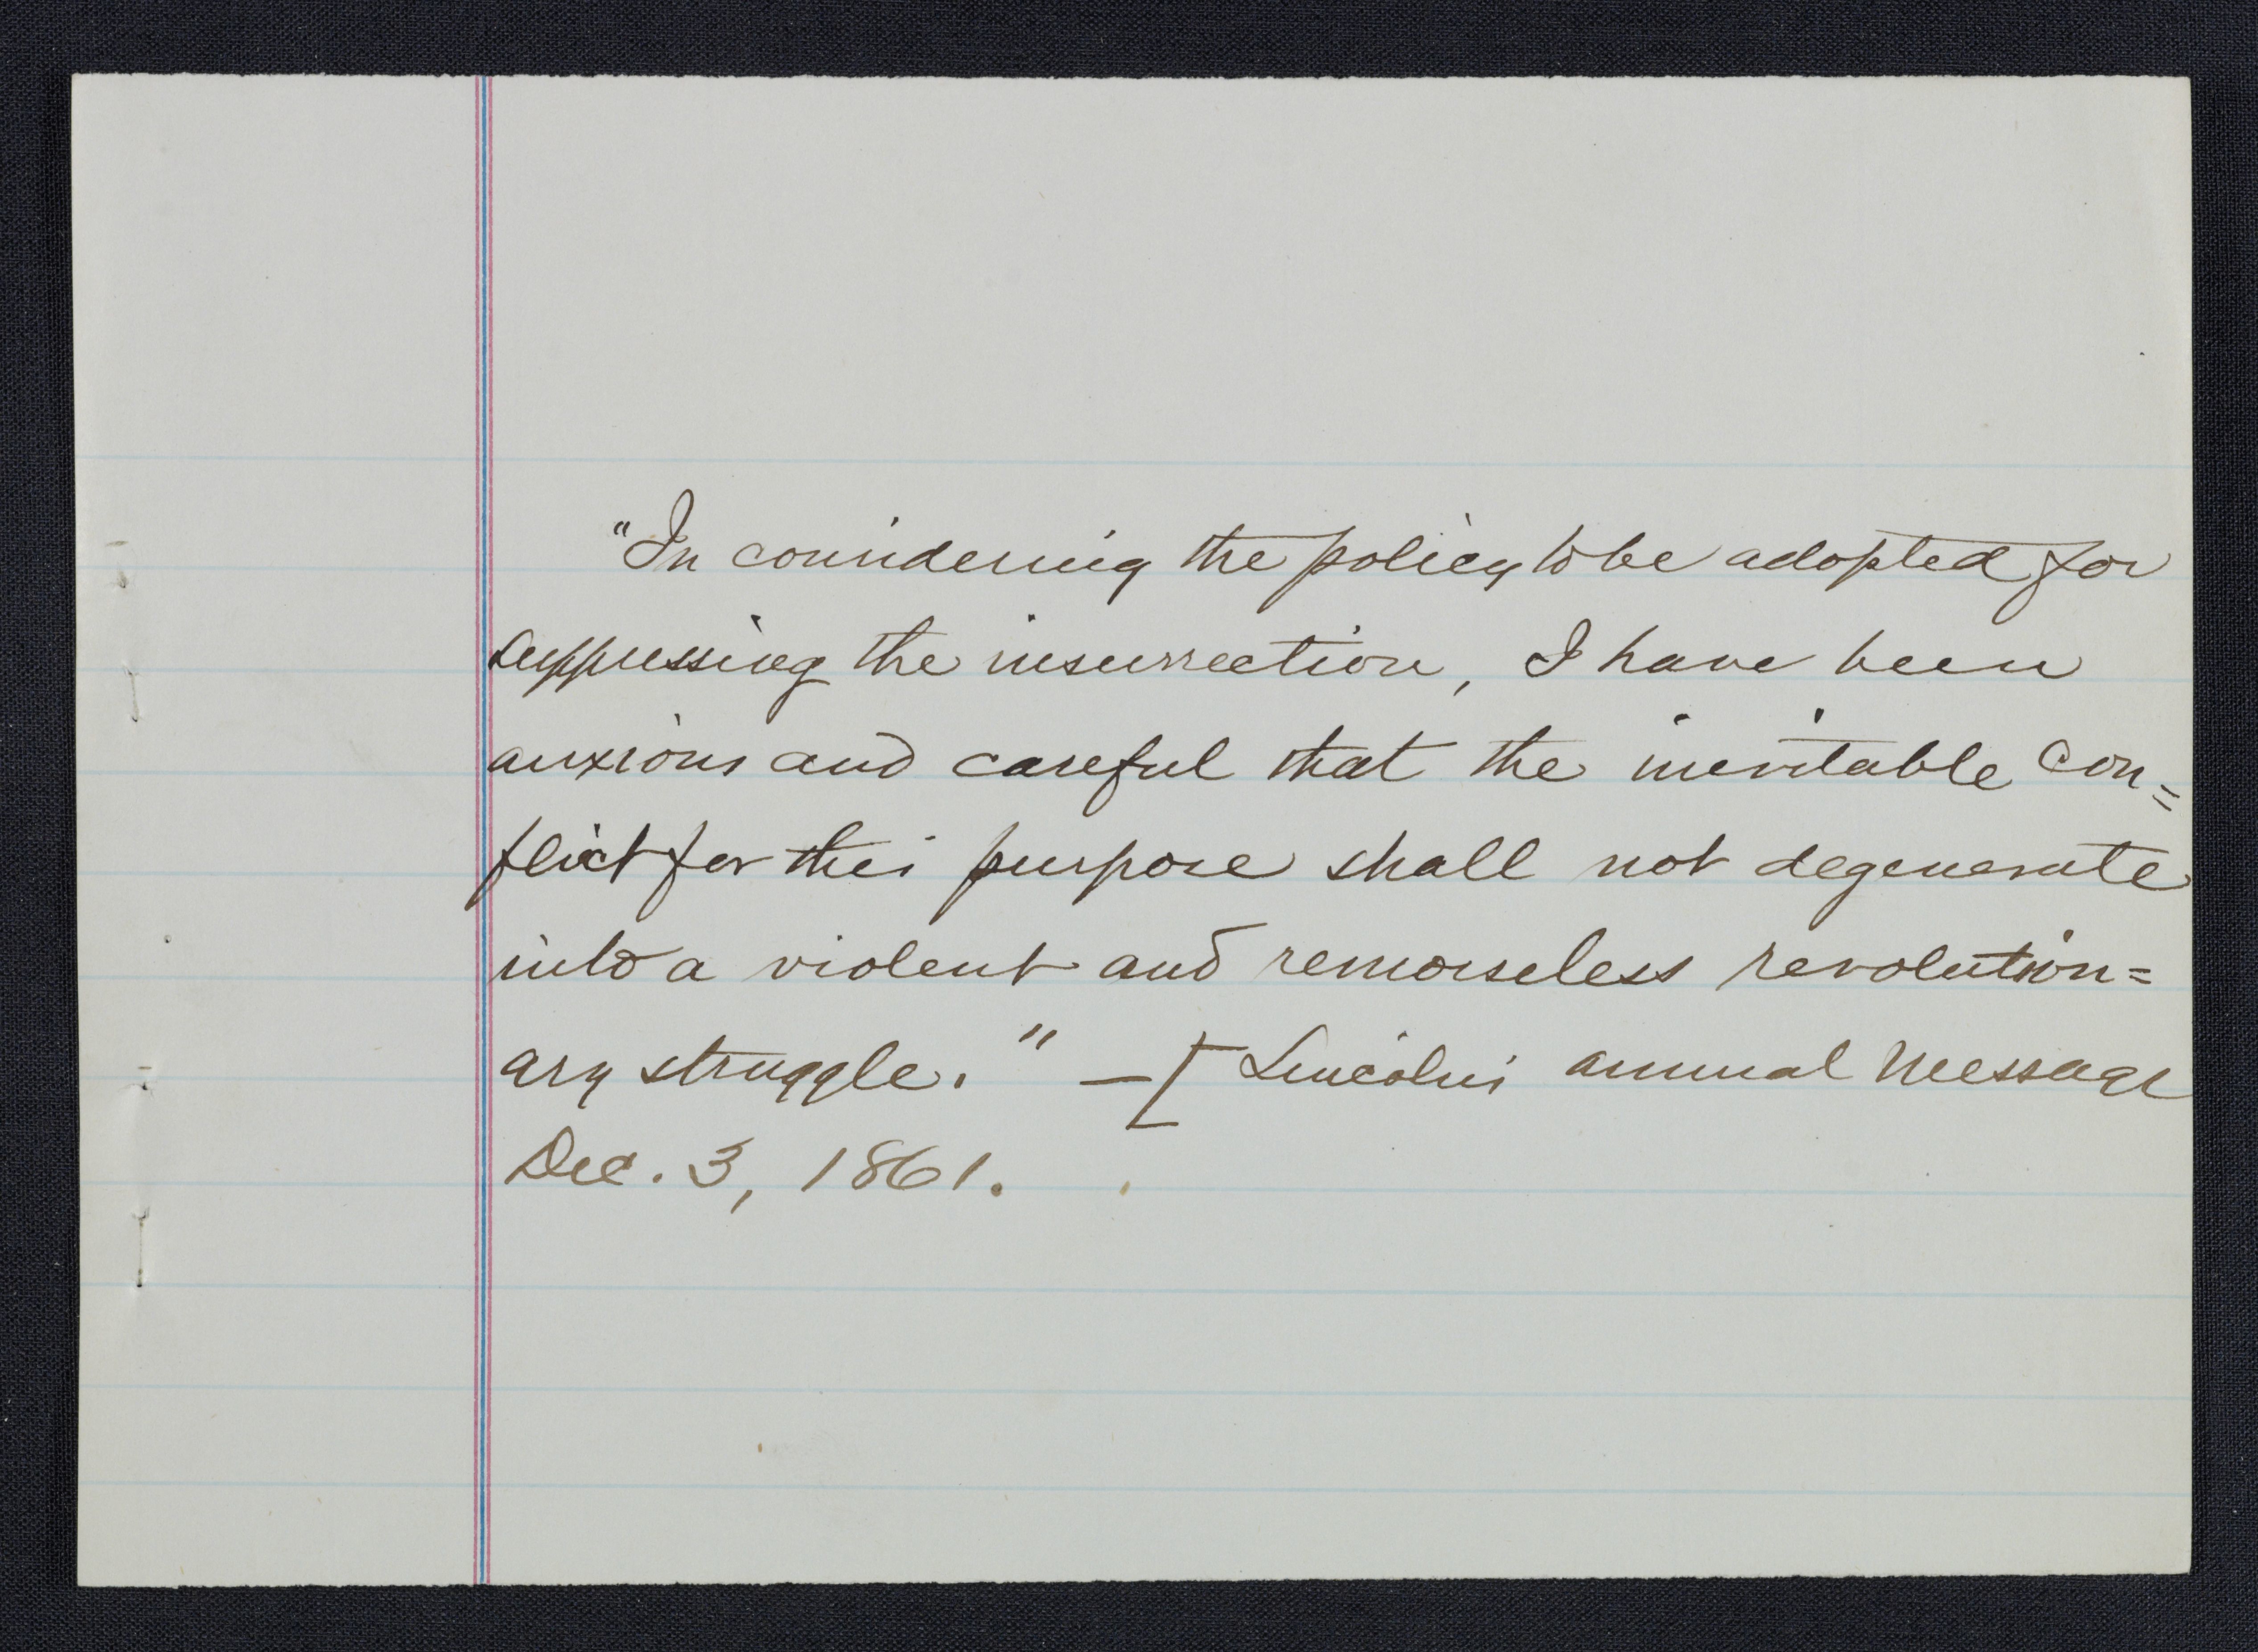 "In considering the policy to be adopted for
suppressing the insurrection, I have been
anxious and careful that the inevitable con=
flict for this purpose shall not degenerate
into a violent and remorseless revolution=
ary struggle." —[Lincoln's annual Message
Dec. 3, 1861.